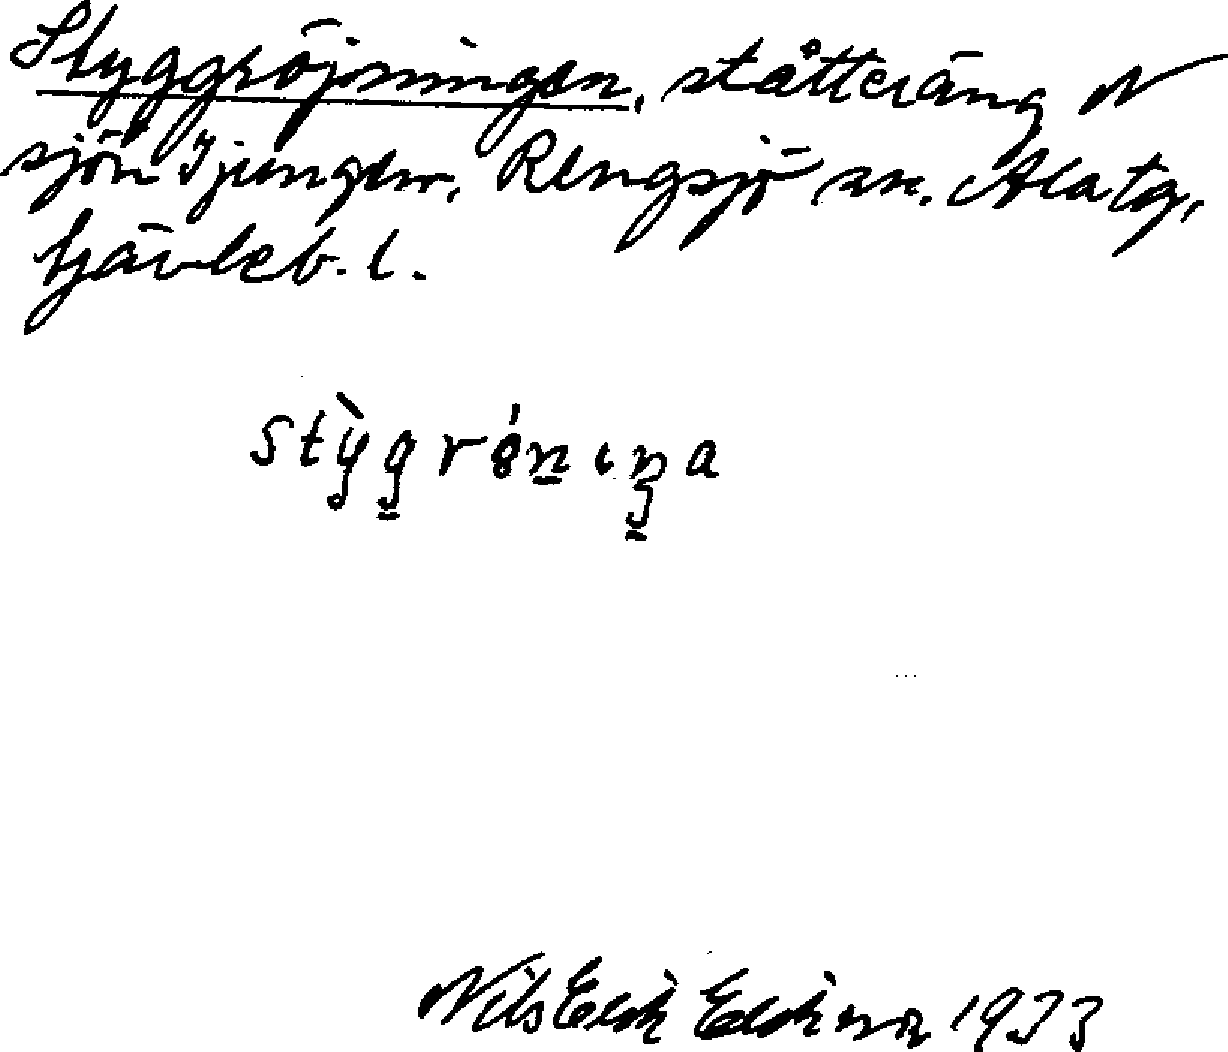 Styggröjningen, slåtteräng N
sjön Tjungen, Rengsjö sn. Ala tg,
Gävleb. l.
stỳgrö́niŋa
Nils Erik Eriksson 1933